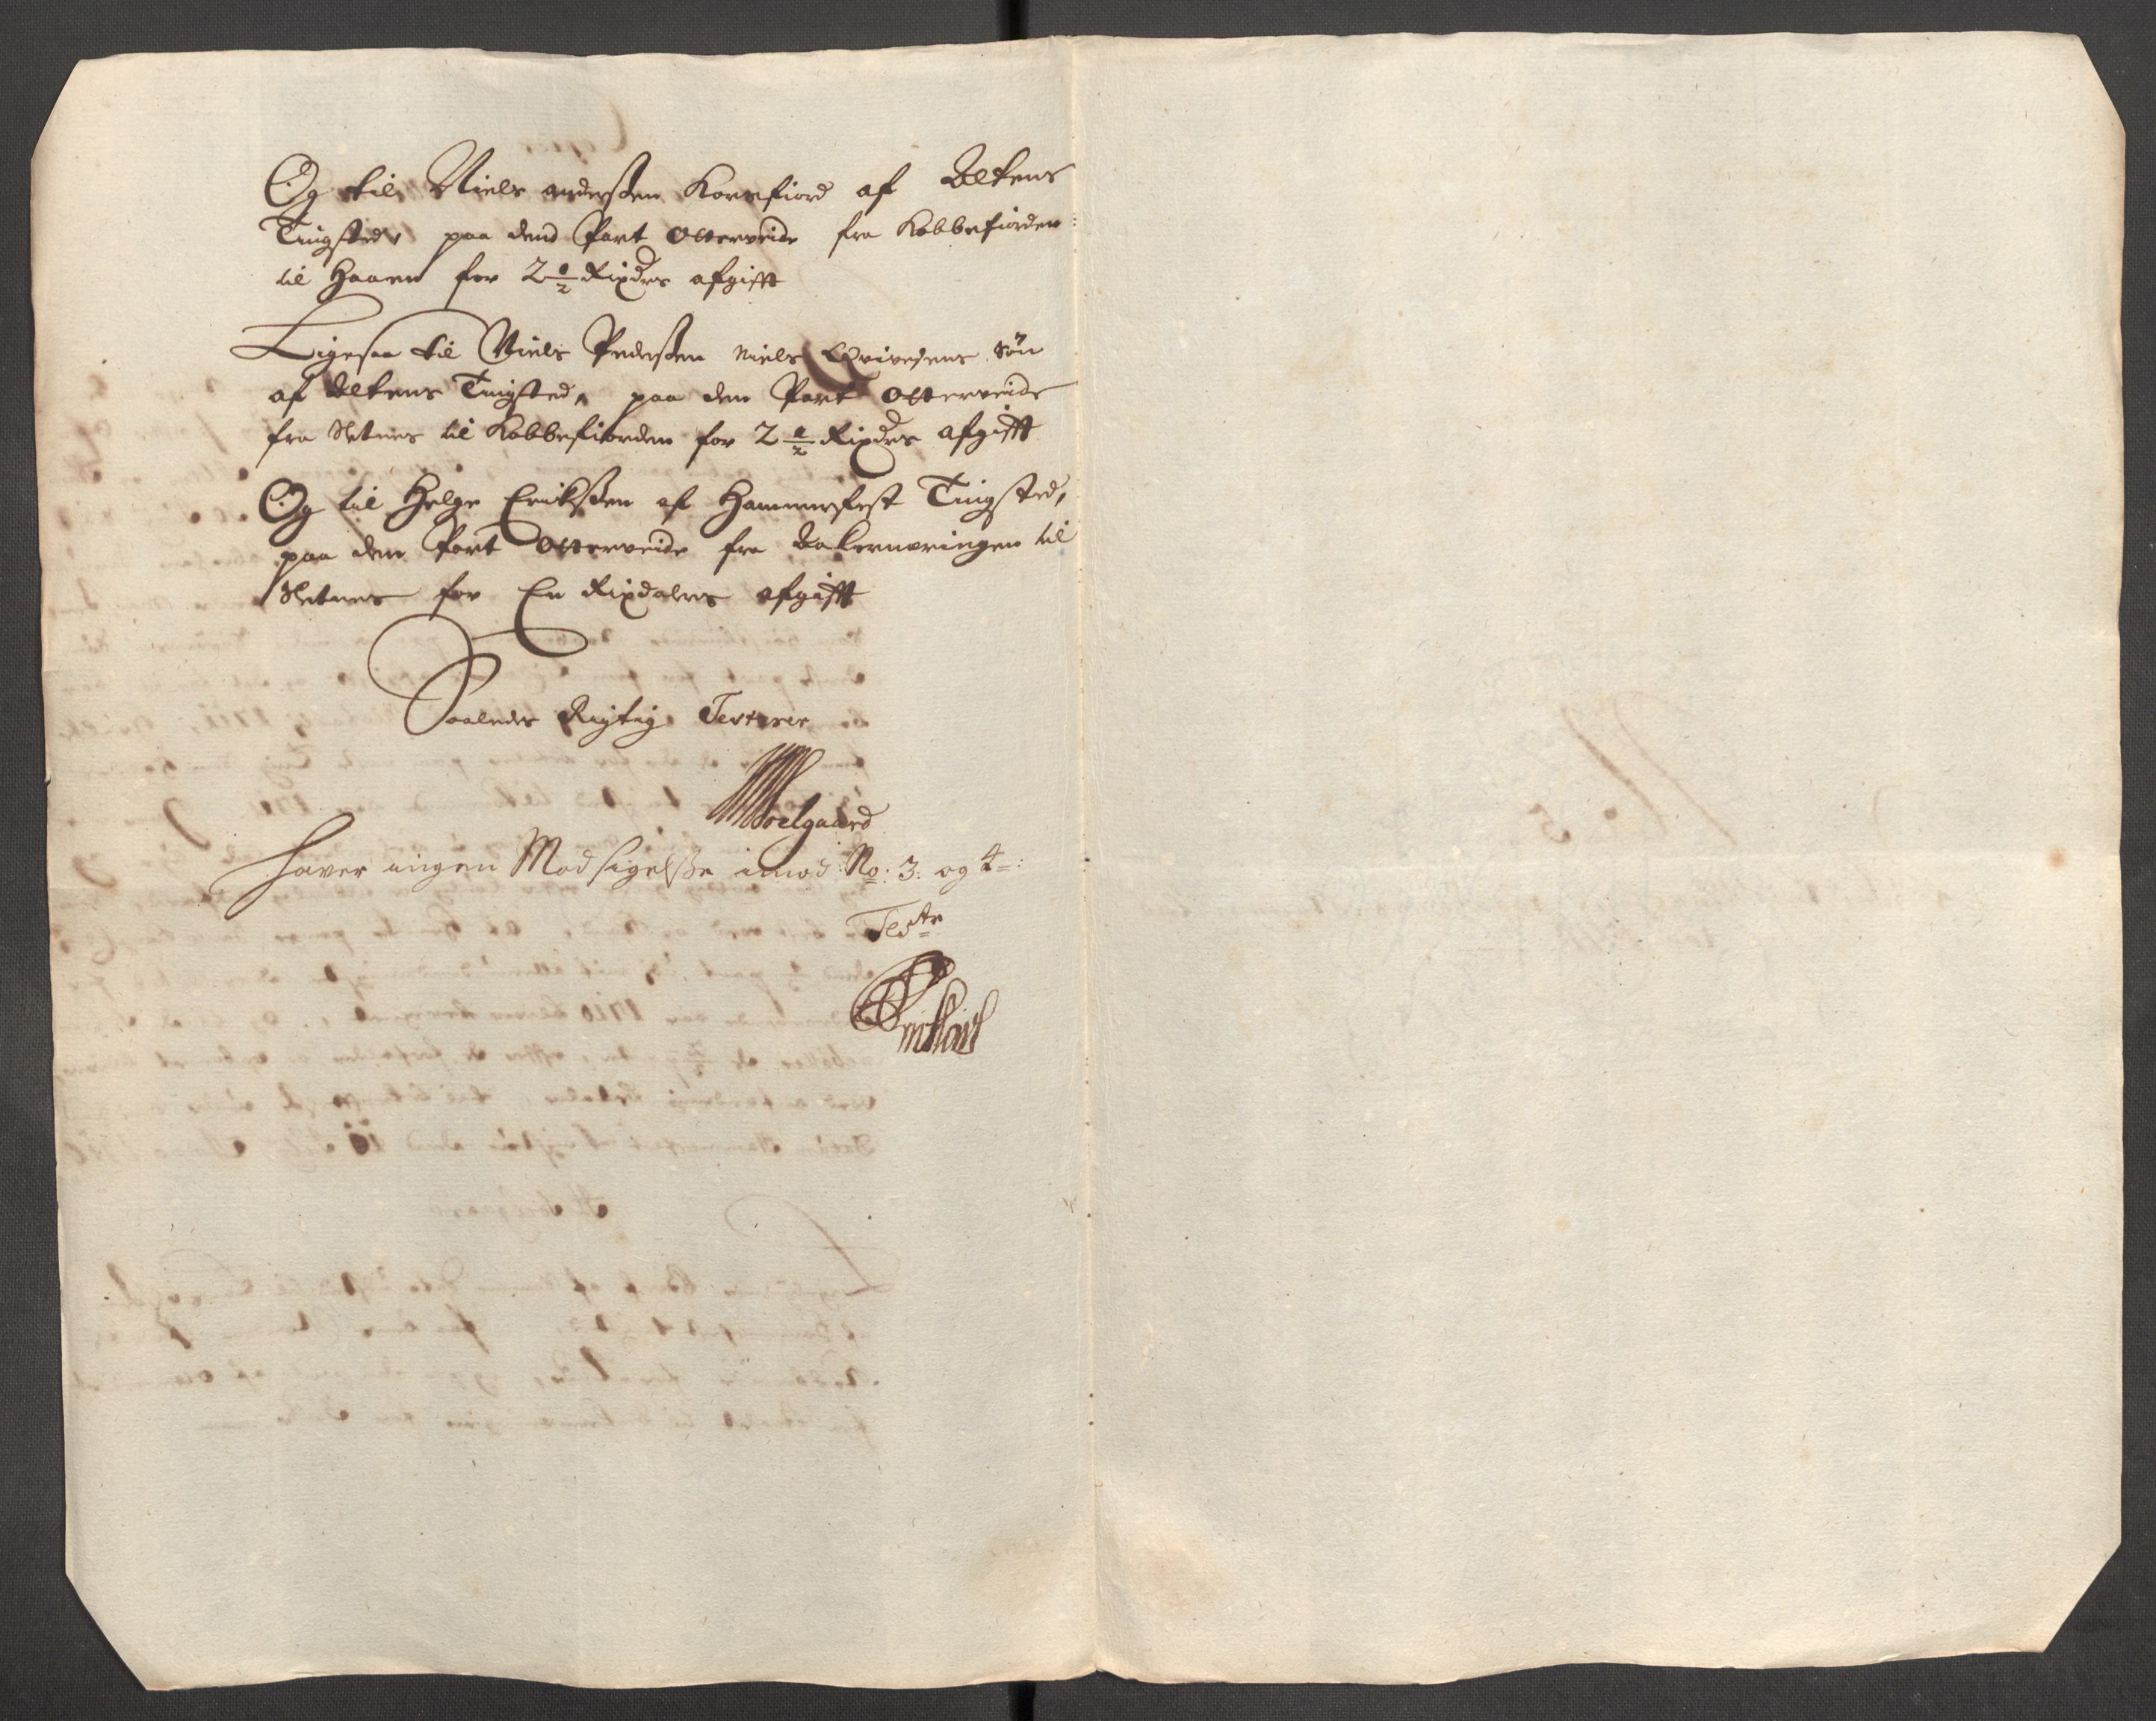 Og til Niels andersßen Korsfiord af Altens
Tingsted, paa dend Part Otterveide fra Kobbefiorden
til Haaen for 2 1/2 Rixdrs afgifft
Ligesaa til Niels Pedersßen Niels søn
af Altens Tingsted, paa den Part Otterveide
fra Sletnes til Kobbefiorden for 2 1/2 Rixdrs afgifft
Og til Helge Erichsßen af Hammerfest Tingsted,
paa den Part Otterveide fra til
Sletnes for En Rixdalers afgifft
Saaledes Rigtig Testerer
Soelgaard
hafver ingen Modsigelsße imod No: 3: og 4=:
Teste